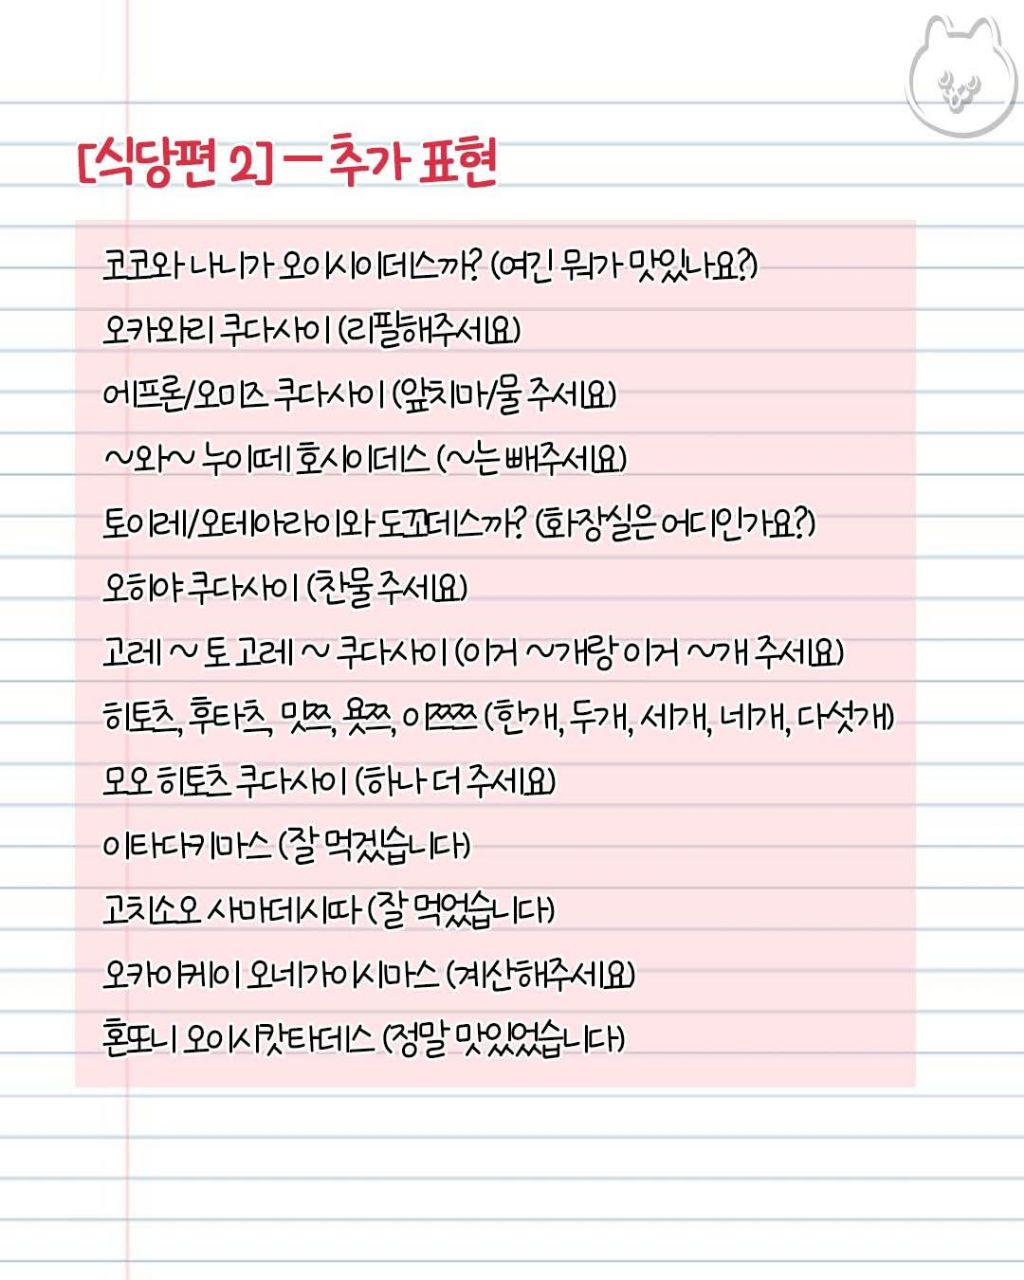 [식당편 2] — 추가 표현
코코와 나니가 오이시이데스까? (여긴 뭐가 맛있나요?)
오카와리 쿠다사이 (리필해주세요)
에프론/오미즈 쿠다사이 (앞치마/물 주세요)
~와~ 누이떼 호시이데스 (~는 빼주세요)
토이레/오테아라이와 도꼬데스까? (화장실은 어디인가요?)
오히야 쿠다사이 (찬물 주세요)
고레 ~ 토 고레 ~ 쿠다사이 (이거 ~개랑 이거 ~개 주세요)
히토츠, 후타츠, 밋쯔, 욧쯔, 이쯔쯔 (한개, 두개, 세개, 네개, 다섯개)
모오 히토츠 쿠다사이 (하나 더 주세요)
이타다키마스 (잘 먹겠습니다)
고치소오 사마데시따 (잘 먹었습니다)
오카이케이 오네가이시마스 (계산해주세요)
혼또니 오이시캇타데스 (정말 맛있었습니다)